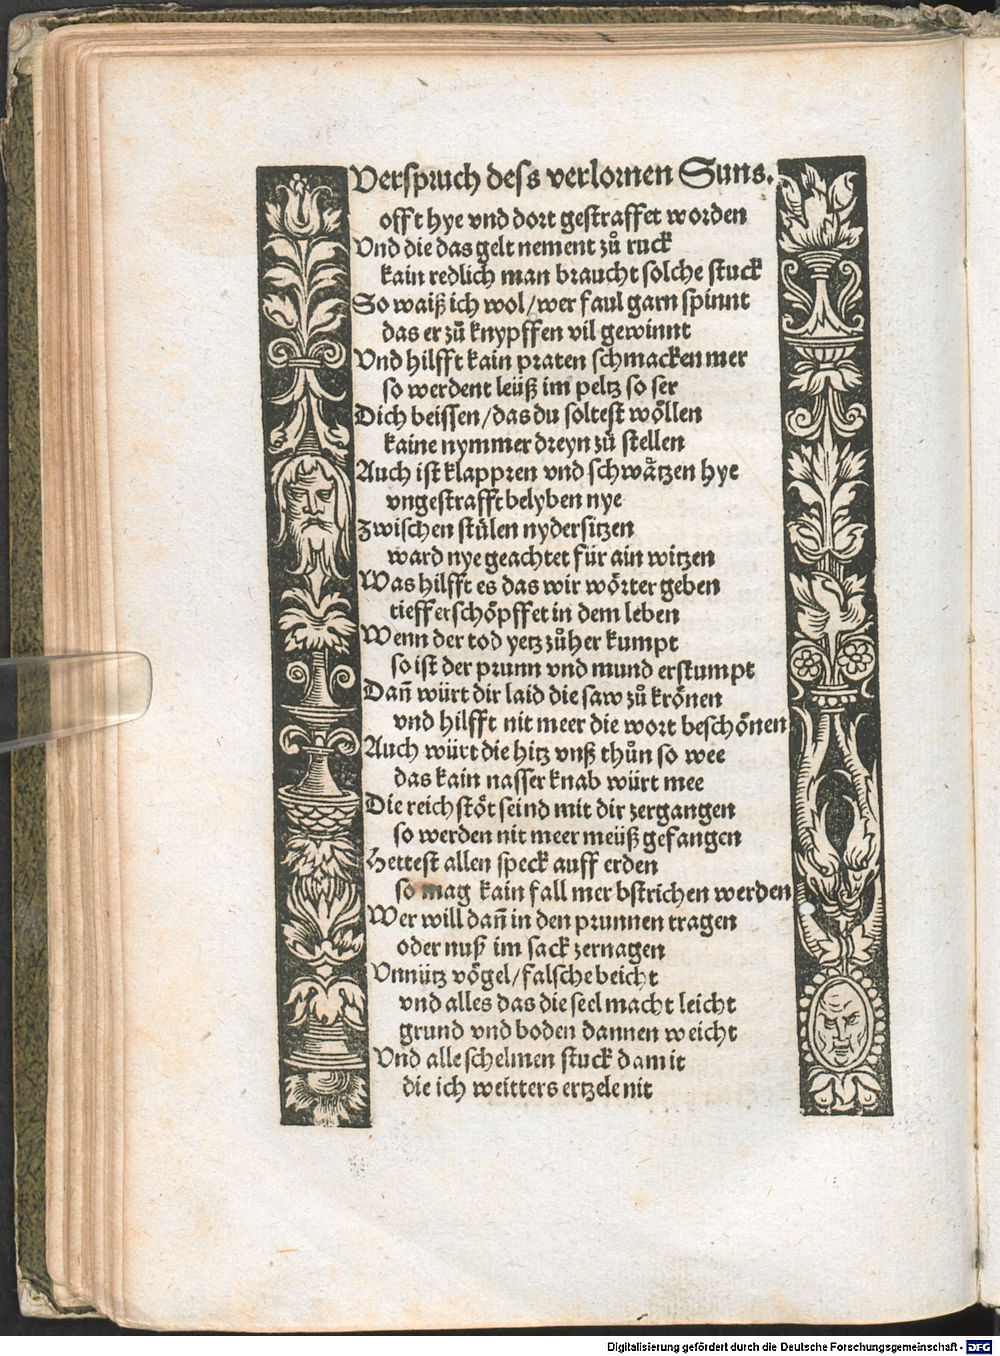 Verspruch dess verlornen Suns.
offt hye vnd dort gestraffet worden
Vnd die das gelt nement zů ruck
kain redlich man braucht solche stuck
So waiß ich wol/wer faul garn spinnt
das er zů knypffen vil gewinnt
Vnd hilfft kain praten schmacken mer
so werdent leüß im peltz so ser
Dich beissen/das du soltest wöllen
kaine nymmer dreyn zů stellen
Auch ist klappren vnd schwätzen hye
vngestrafft belyben nye
Zwischen stülen nydersitzen
ward nye geachtet für ain witzen
Was hilfft es das wir wörter geben
tieff erschöpffet in dem leben
Wenn der tod yetz zůher kumpt
so ist der prunn vnd mund erstumpt
Dañ würt dir laid die saw zů krönen
vnd hilfft nit meer die wort beschönen
Auch würt die hitz vnß thůn so wee
das kain nasser knab würt mee
Die reich stöt seind mit dir zergangen
so werden nit meer meüß gefangen
Hettest allen speck auff erden
so mag kain fall mer bstrichen werden
Wer will dañ in den prunnen tragen
oder nuß im sack zernagen
Vnnütz vögel/falsche beicht
vnd alles das die seel macht leicht
grund vnd boden dannen weicht
Vnd alle schelmen stuck damit
die ich weitters ertzele nit
Digitalisierung gefördert durch die Deutsche Forschungsgemeinschaft - DFG